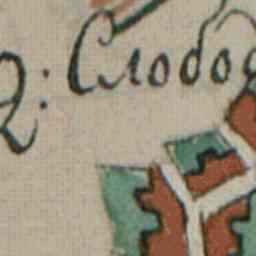 2: Слобод